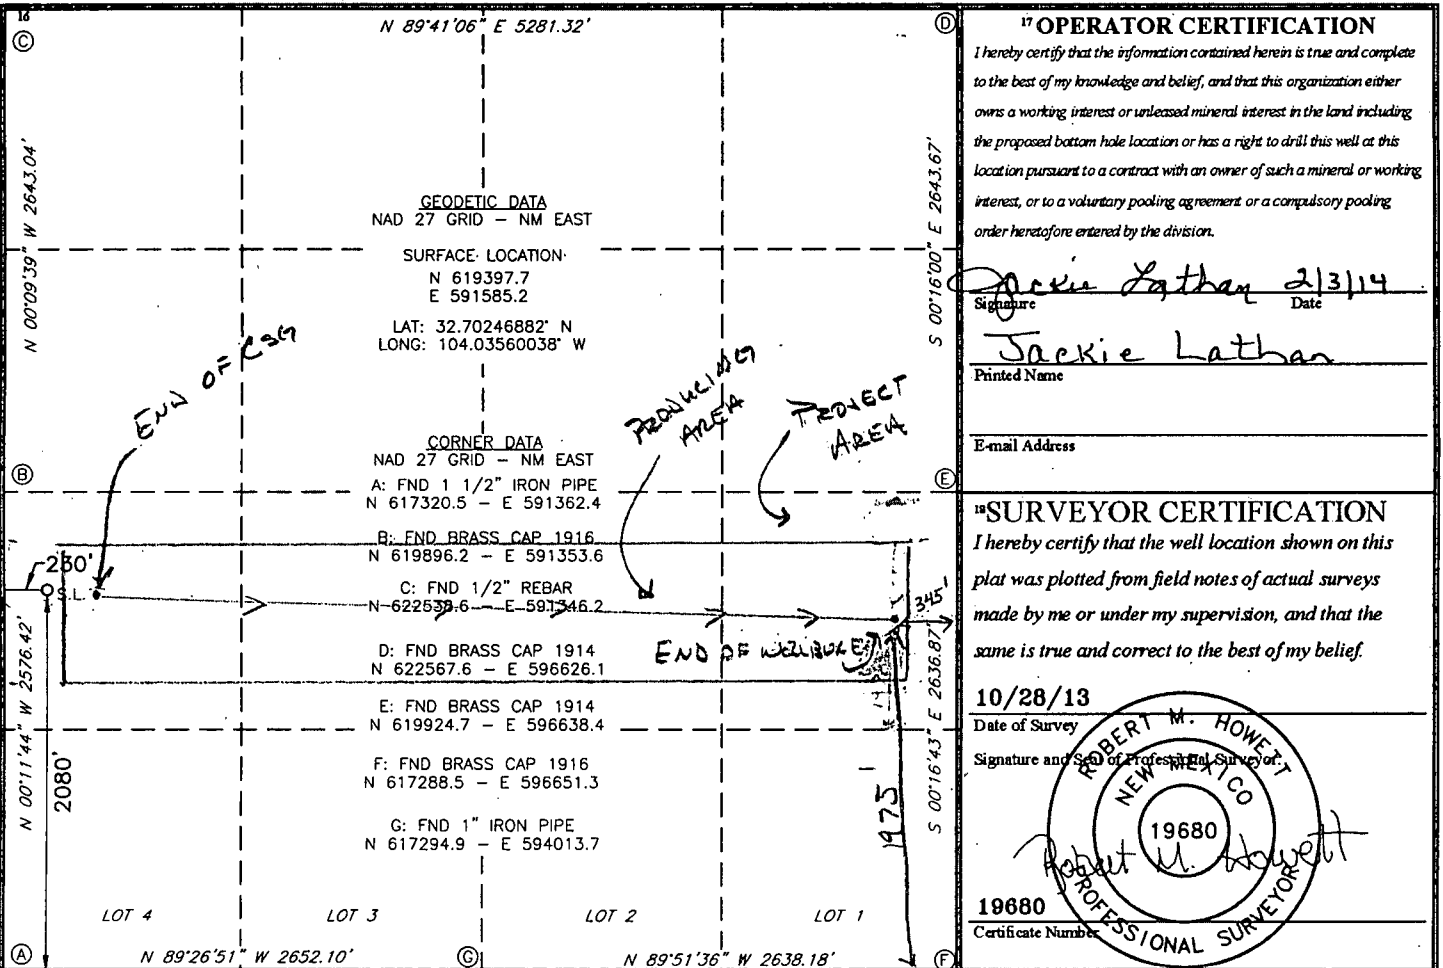 16
C
N 89°41'06" E 5281.32'
D
N 00°09'39" W 2643.04'
S 00°16'00" E 2643.67'
GEODETIC DATA
NAD 27 GRID – NM EAST
SURFACE LOCATION
N 619397.7
E 591585.2
LAT: 32.70246882° N
LONG: 104.03560038° W
END OF CSG
PRODUCING AREA
PROJECT AREA
B
E
CORNER DATA
NAD 27 GRID – NM EAST
A: FND 1 1/2" IRON PIPE
N 617320.5 – E 591362.4
B: FND BRASS CAP 1916
N 619896.2 – E 591353.6
C: FND 1/2" REBAR
N 622538.6 – E 591346.2
D: FND BRASS CAP 1914
N 622567.6 – E 596626.1
E: FND BRASS CAP 1914
N 619924.7 – E 596638.4
F: FND BRASS CAP 1916
N 617288.5 – E 596651.3
G: FND 1" IRON PIPE
N 617294.9 – E 594013.7
230'
S.L.
345'
END OF WELLBORE
N 00°11'44" W 2576.42'
2080'
1975'
S 00°16'43" E 2636.87'
LOT 4
LOT 3
LOT 2
LOT 1
A
N 89°26'51" W 2652.10'
G
N 89°51'36" W 2638.18'
F
17 OPERATOR CERTIFICATION
I hereby certify that the information contained herein is true and complete
to the best of my knowledge and belief, and that this organization either
owns a working interest or unleased mineral interest in the land including
the proposed bottom hole location or has a right to drill this well at this
location pursuant to a contract with an owner of such a mineral or working
interest, or to a voluntary pooling agreement or a compulsory pooling
order heretofore entered by the division.
Jackie Lathan 2/3/14
Signature Date
Jackie Lathan
Printed Name
E-mail Address
18 SURVEYOR CERTIFICATION
I hereby certify that the well location shown on this
plat was plotted from field notes of actual surveys
made by me or under my supervision, and that the
same is true and correct to the best of my belief.
10/28/13
Date of Survey
Signature and Seal of Professional Surveyor:
ROBERT M. HOWETT
NEW MEXICO
19680
Robert M. Howett
PROFESSIONAL SURVEYOR
19680
Certificate Number